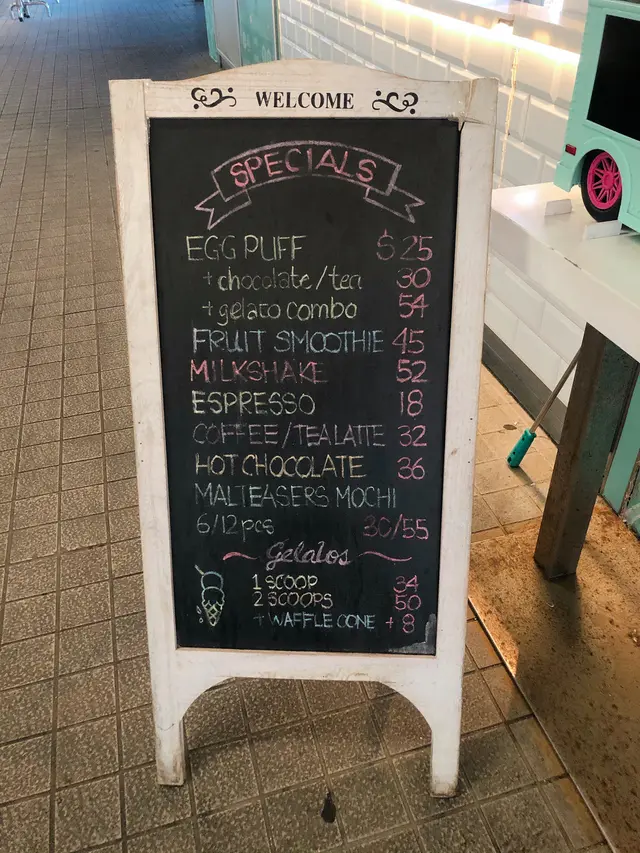 WELCOME
SPECIALS
EGG PUFF $25
+ chocolate/tea 30
+ gelato combo 54
FRUIT SMOOTHIE 45
MILKSHAKE 52
ESPRESSO 18
COFFEE/TEA LATTE 32
HOT CHOCOLATE 36
MALTEASERS MOCHI
6/12 pcs 30/55
~ Gelatos ~
1 SCOOP 34
2 SCOOPS 50
+ WAFFLE CONE +8